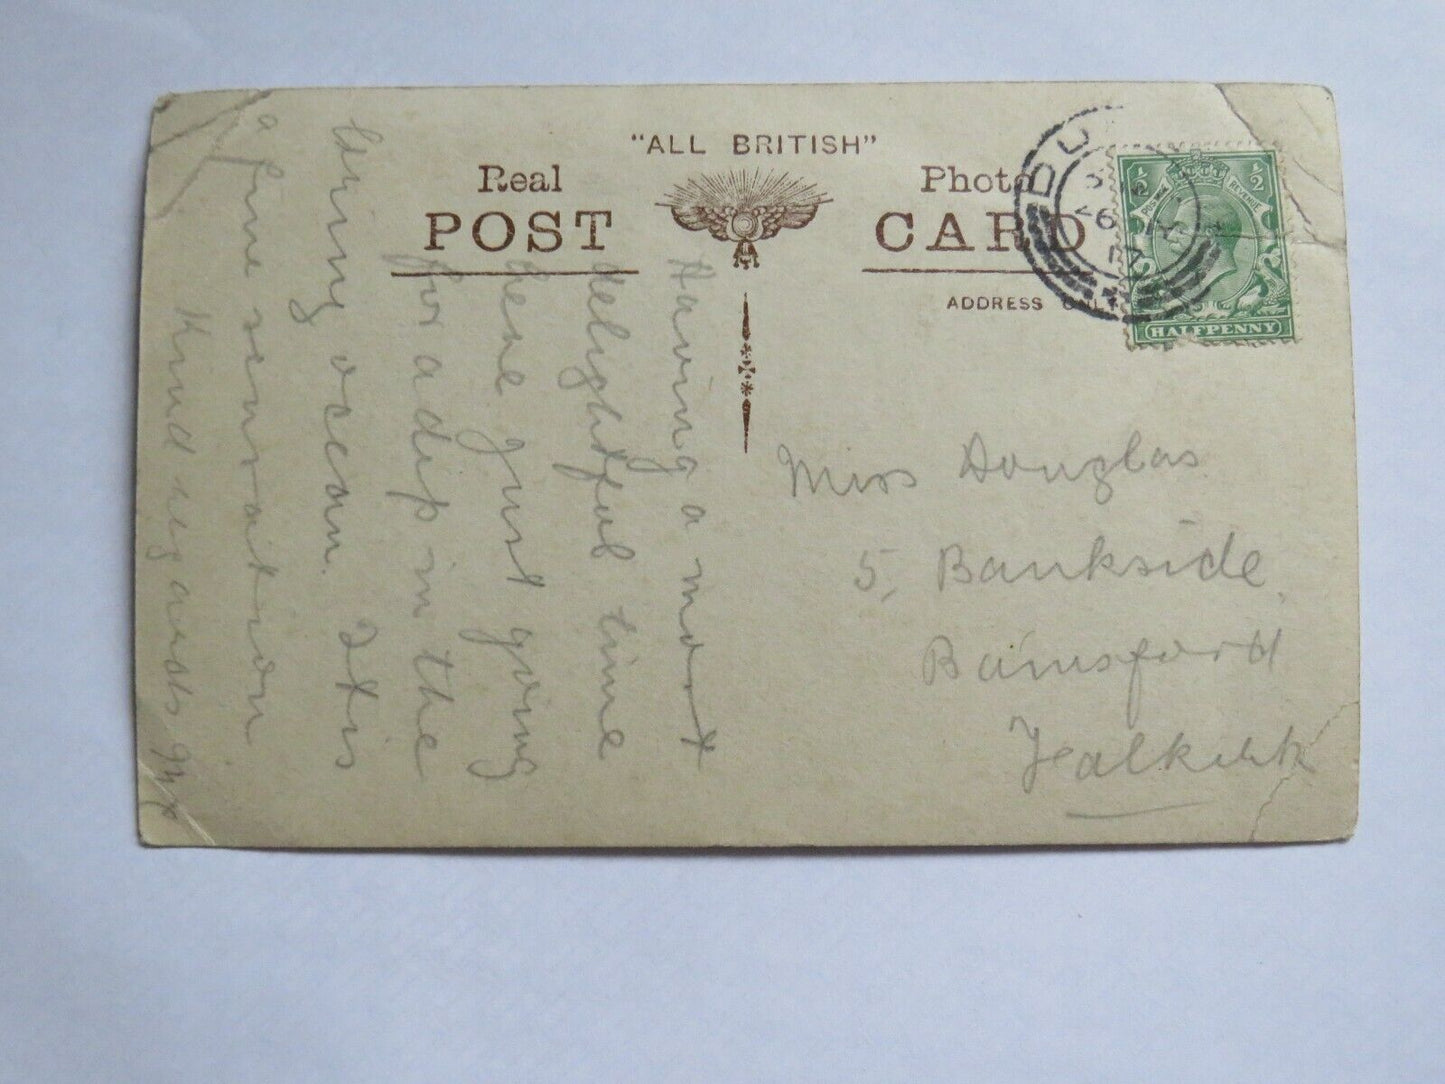 "ALL BRITISH"
Real Photo
POST CARD
ADDRESS ONLY
POSTAGE REVENUE
½ ½
HALFPENNY
Having a most
delightful time
here just going
for a dip in the
briny ocean. It is
a fine sensation
Kind regards
Miss Douglas
5, Bankside,
Bainsford
Falkirk